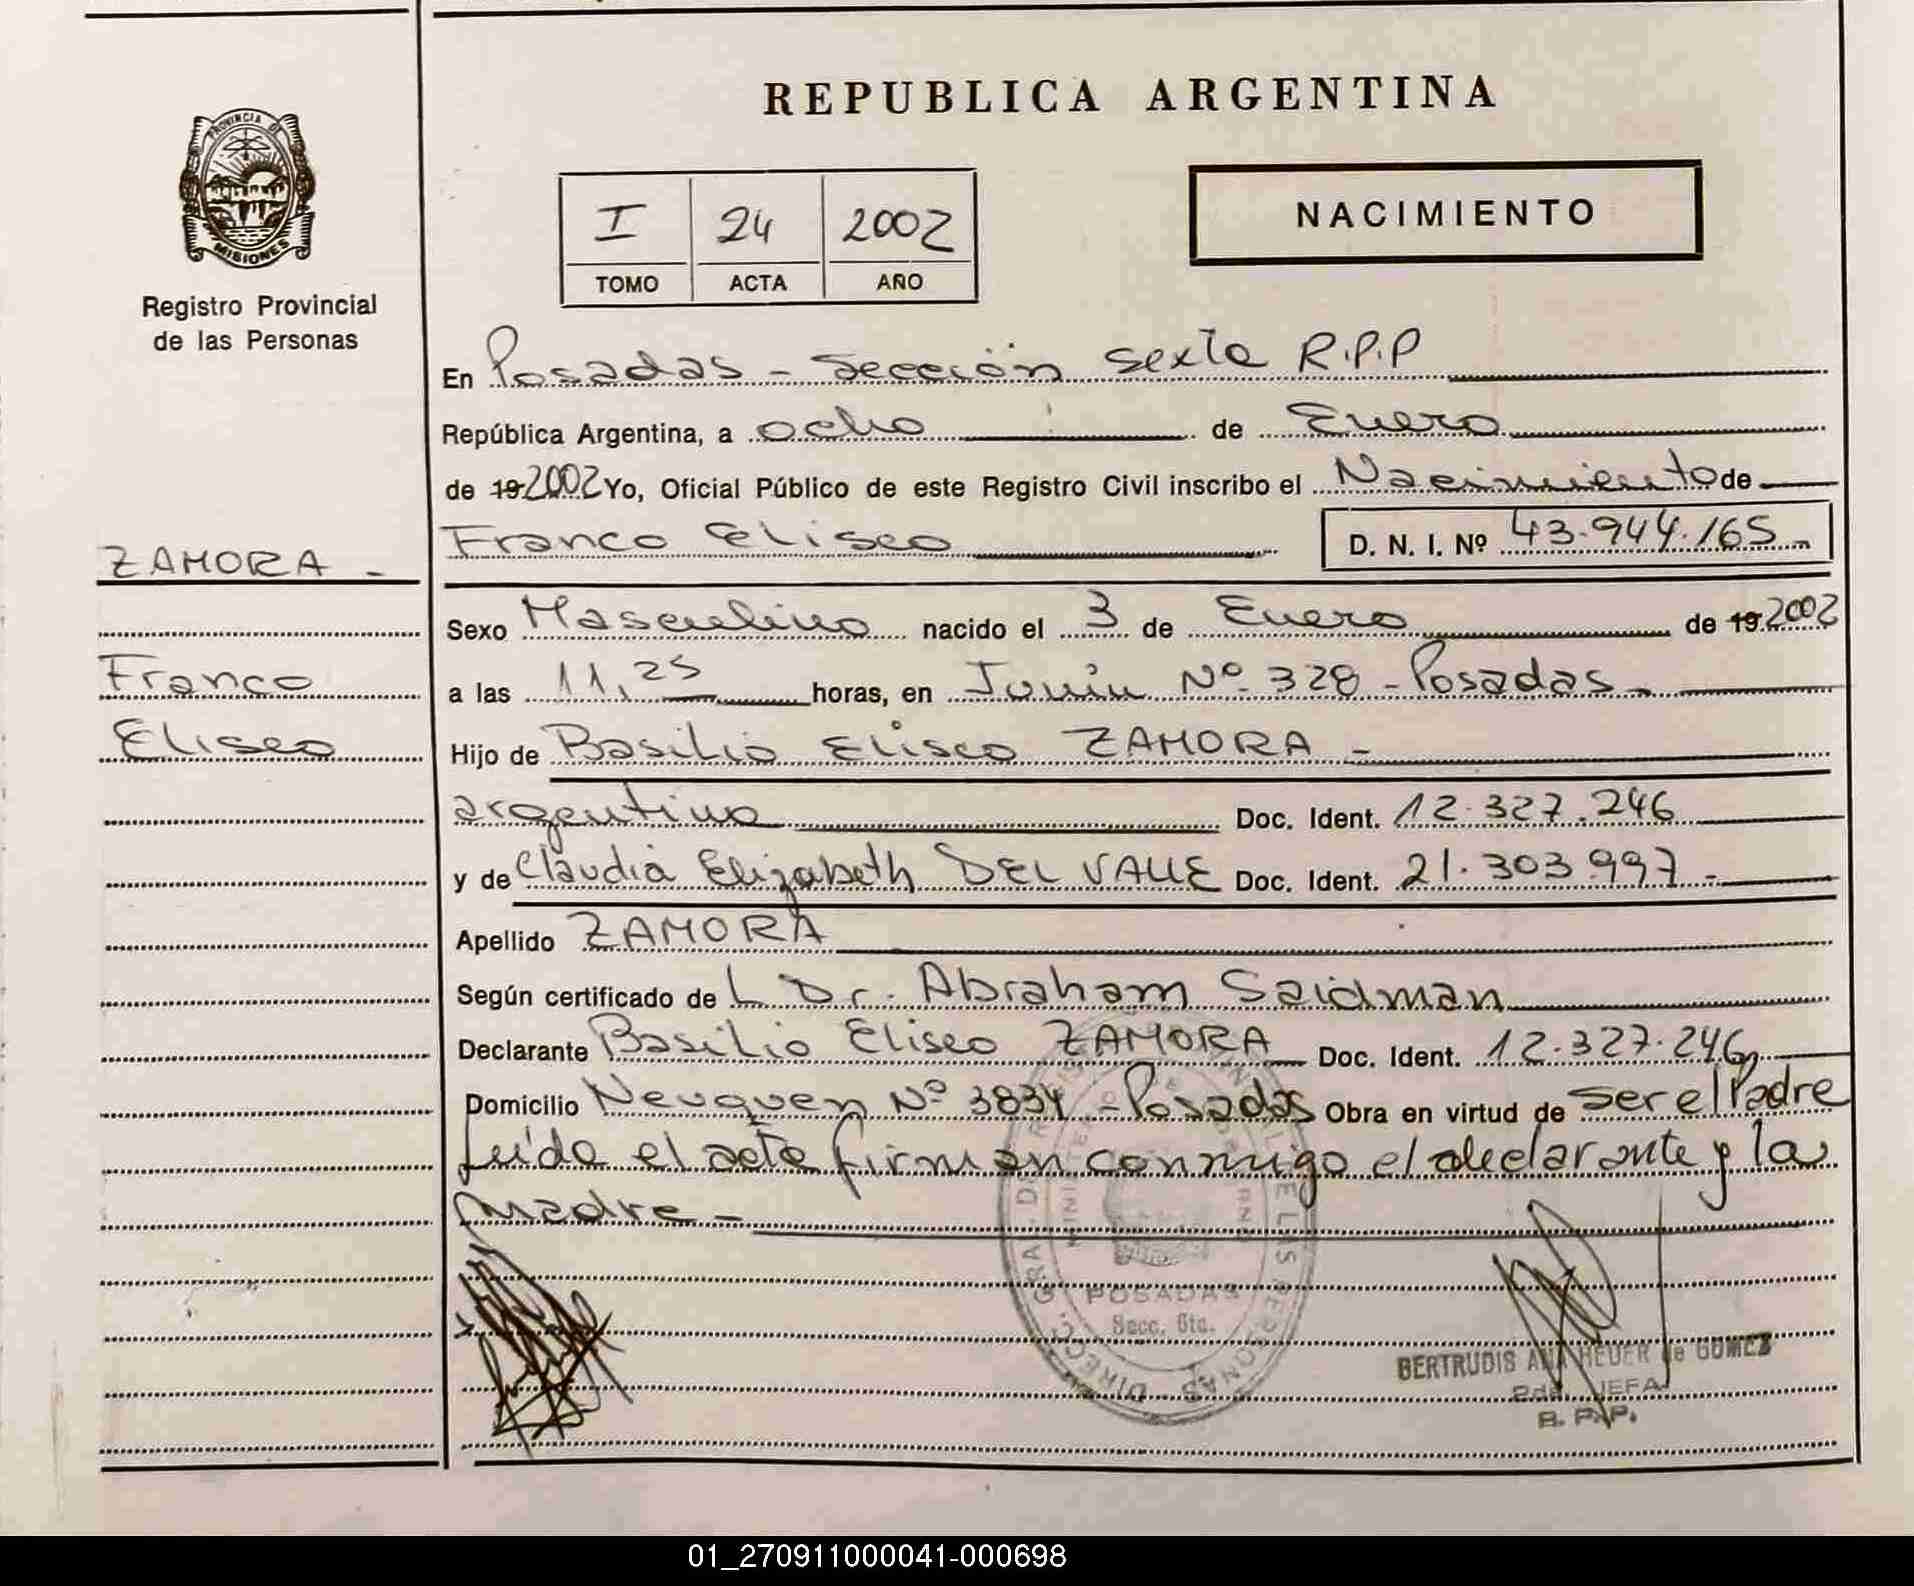 REPUBLICA ARGENTINA
PROVINCIA DE
MISIONES
Registro Provincial
de las Personas
I 24 2002
TOMO ACTA AÑO
NACIMIENTO
En Posadas - Sección Sexta R.P.P
República Argentina, a ocho de Enero
de 19 2002 Yo, Oficial Público de este Registro Civil inscribo el Nacimiento de
Franco Eliseo D. N. I. Nº 43.944.165.-
ZAMORA -
Franco
Eliseo
Sexo Masculino nacido el 3 de Enero de 19 2002
a las 11,25 horas, en Junin Nº 328 - Posadas -
Hijo de Basilio Eliseo ZAMORA -
argentino Doc. Ident. 12.327.246
y de Claudia Elizabeth DEL VALLE Doc. Ident. 21.303.997.-
Apellido ZAMORA
Según certificado de L Dr. Abraham Saidman
Declarante Basilio Eliseo ZAMORA Doc. Ident. 12.327.246
Domicilio Neuquen Nº 3834 - Posadas Obra en virtud de ser el Padre
Leída el acta firman conmigo el declarante y la
madre -
POSADAS
Secc. 6ta.
GERTRUDIS ANA HEUER de GOMEZ
JEFA
R. P. P.
01_270911000041-000698